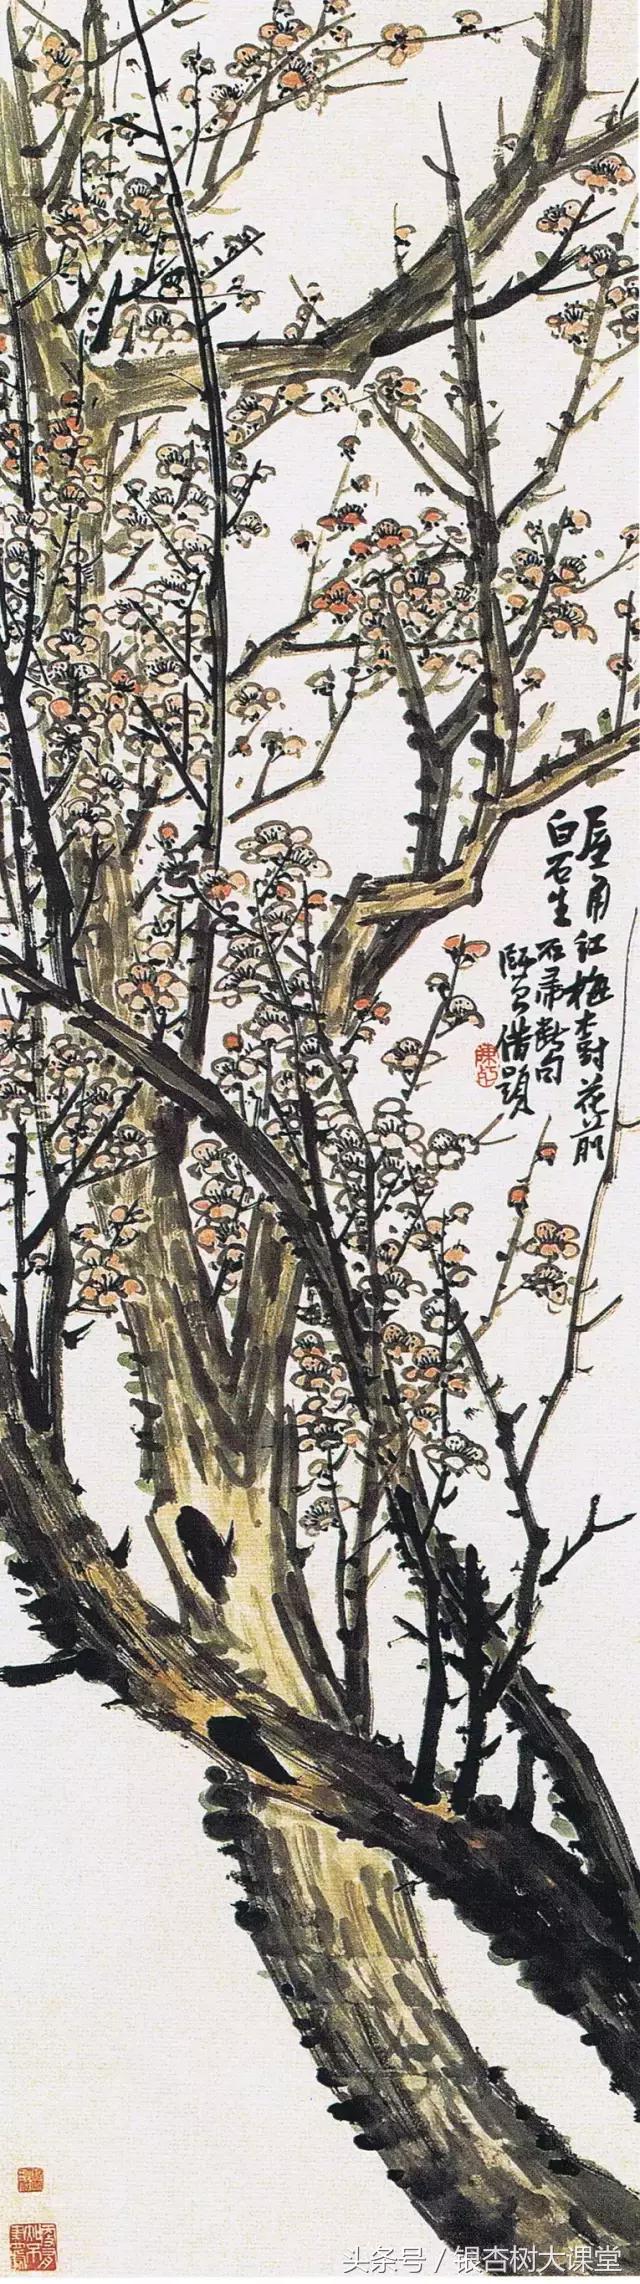 屋角红梅樹花前
白石生
石帚断句
師曾借題
头条号 / 银杏树大课堂